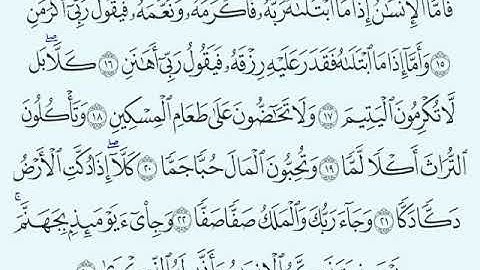 فَأَمَّا ٱلْإِنسَٰنُ إِذَا مَا ٱبْتَلَىٰهُ رَبُّهُۥ فَأَكْرَمَهُۥ وَنَعَّمَهُۥ فَيَقُولُ رَبِّىٓ أَكْرَمَنِ
﴿١٥﴾ وَأَمَّآ إِذَا مَا ٱبْتَلَىٰهُ فَقَدَرَ عَلَيْهِ رِزْقَهُۥ فَيَقُولُ رَبِّىٓ أَهَٰنَنِ ﴿١٦﴾ كَلَّاۖ بَل
لَّا تُكْرِمُونَ ٱلْيَتِيمَ ﴿١٧﴾ وَلَا تَحَٰٓضُّونَ عَلَىٰ طَعَامِ ٱلْمِسْكِينِ ﴿١٨﴾ وَتَأْكُلُونَ
ٱلتُّرَاثَ أَكْلًا لَّمًّا ﴿١٩﴾ وَتُحِبُّونَ ٱلْمَالَ حُبًّا جَمًّا ﴿٢٠﴾ كَلَّآۖ إِذَا دُكَّتِ ٱلْأَرْضُ
دَكًّا دَكًّا ﴿٢١﴾ وَجَآءَ رَبُّكَ وَٱلْمَلَكُ صَفًّا صَفًّا ﴿٢٢﴾ وَجِا۟ىٓءَ يَوْمَئِذٍۭ بِجَهَنَّمَۚ